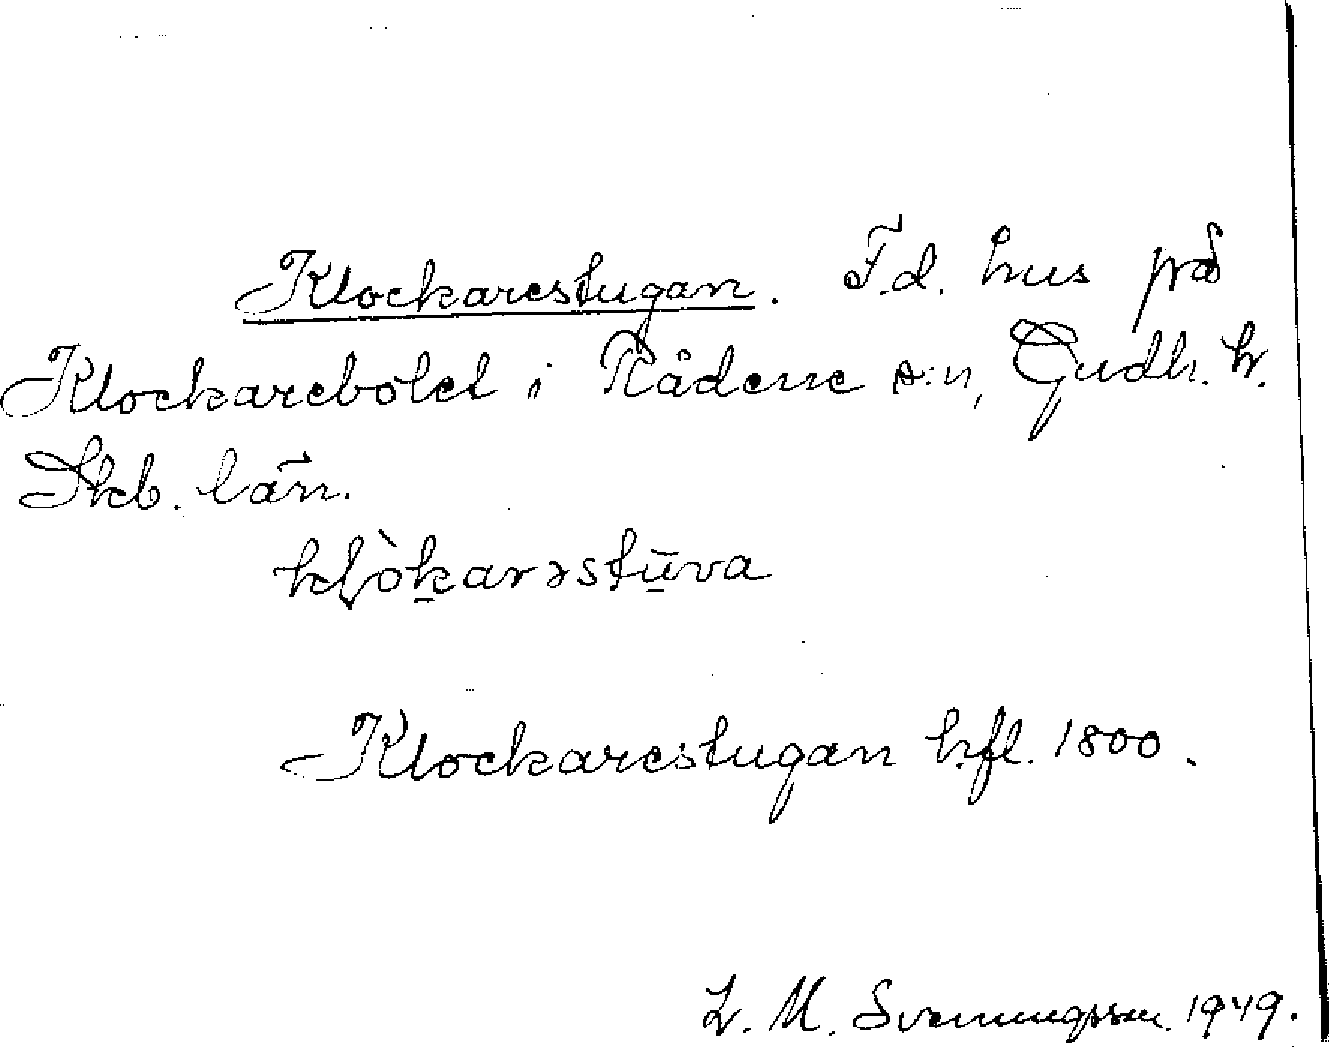 Klockarestugan. F.d. hus på
Klockarebolet i Rådene s:n, Gudh. h.
Skb. län.
kḷòkarəstūva
Klockarestugan hfl. 1800.
L. M. Svenungsson. 1949.